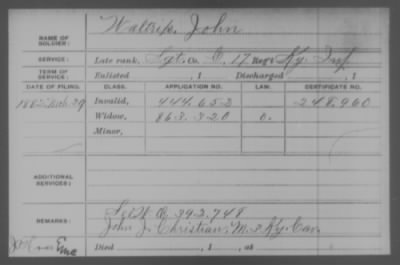 NAME OF SOLDIER: Waltrip, John
SERVICE: Late rank, Sgt. Co. C, 17 Reg't Ky. Inf.
TERM OF SERVICE: Enlisted , 1 Discharged , 1
DATE OF FILING. CLASS. APPLICATION NO. LAW. CERTIFICATE NO.
1882 29 Invalid, 444.652 248.960
Widow, 868.320 O.
Minor,
ADDITIONAL SERVICES:
REMARKS: 392.748
John J. Christian, M. 3 Ky. Cav.
Died , 1 , at